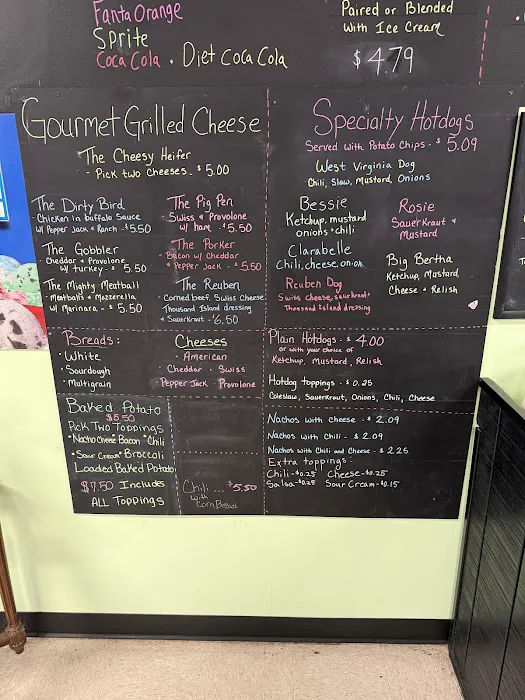 Fanta Orange
Sprite
Coca Cola · Diet Coca Cola
Paired or Blended
With Ice Cream
$4.79
Gourmet Grilled Cheese
The Cheesy Heifer
- Pick two cheeses - $5.00
The Dirty Bird
- Chicken in buffalo sauce
w/ Pepper Jack & Ranch - $5.50
The Gobbler
- Cheddar & Provolone
w/ turkey - $5.50
The Mighty Meatball
- Meatballs & Mozzerella
w/ Marinara - $5.50
The Pig Pen
- Swiss & Provolone
w/ ham - $5.50
The Porker
- Bacon w/ Cheddar
& Pepper Jack - $5.50
The Reuben
- Corned beef, Swiss Cheese
Thousand Island dressing
& Sauerkraut - $6.50
Specialty Hotdogs
Served with Potato Chips - $5.09
West Virginia Dog
Chili, Slaw, Mustard, Onions
Bessie
Ketchup, mustard
onions & chili
Rosie
Sauerkraut &
Mustard
Clarabelle
Chili, cheese, onion
Big Bertha
Ketchup, Mustard,
Cheese & Relish
Reuben Dog
Swiss cheese, sauerkraut
Thousand Island dressing
Breads:
· White
· Sourdough
· Multigrain
Cheeses
American
Cheddar · Swiss
Pepper Jack · Provolone
Plain Hotdogs - $4.00
or with your choice of
Ketchup, Mustard, Relish
Hotdog toppings - $0.25
Coleslaw, Sauerkraut, Onions, Chili, Cheese
Baked Potato
$5.50
Pick Two Toppings
· Nacho Cheese · Bacon · Chili
· Sour Cream · Broccoli
Loaded Baked Potato
$7.50 Includes
ALL Toppings
Chili ... $5.50
with
Corn Bread
Nachos with cheese - $2.09
Nachos with Chili - $2.09
Nachos with Chili and Cheese - $2.25
Extra toppings
Chili - $0.25 Cheese - $0.25
Salsa - $0.25 Sour Cream - $0.15